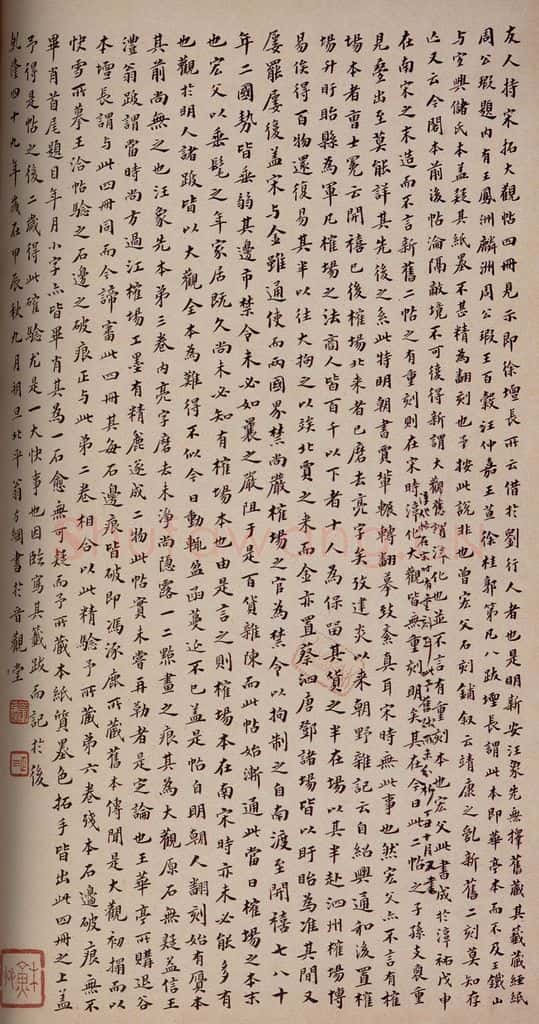 友人持宋拓大觀帖四冊見示即徐壇長所云借於劉行人者也是明新安汪㬎先無擇舊藏其籤藏經紙
周公瑕題內有王鳳洲麟洲周公瑕王百穀汪仲嘉王萱徐桂郭第凡八跋壇長謂此本即華亭本而不及王鐵山
与宜興儲氏本蓋疑其紙墨不甚精為翻刻也予按此說非也曾宏父石刻鋪敘云靖康之亂新舊二刻莫知存
亾又云今閣本前後帖淪隔敵境不可復得新謂大觀舊謂淳化也並不言有重刻本也宏父此書成於淳祐戊申
在南宋之末造而不言新舊二帖之有重刻則在宋時淳化大觀皆無重刻明矣其在今日此二帖之子孫支裔重
見疊出至莫能詳其先後之系此特明朝書賈輩輾轉翻摹致紊真耳宋時無此事也然宏父亦不言有榷
場本者曹士冕云開禧已後榷場北來者已磨去亮字矣攷建炎以來朝野雜記云自紹興通和後置榷
場升盱眙縣為軍凡榷場之法商人皆百千以下者十人為保留其貨之半在場以其半赴泗州榷場博
易俟得百物還復易其半以往大拘之以竢北賈之來而金亦置蔡泗唐鄧諸場皆以盱眙為准其間又
屢罷屢復蓋宋与金雖通使而兩國界禁尚嚴榷場之官為禁令以拘制之自南渡至開禧七八十
年二國勢皆垂弱其邊市禁令未必如曩之嚴阻于是百貨雜陳而此帖始漸通此當日榷場之本末
也宏父以垂髦之年家居既久尚未必知有榷場本也由是言之則榷場本在南宋時亦未必能多有
也觀於明人諸跋皆以大觀全本為難得不似今日動輒盈函蔓延不已蓋是帖自明朝人翻刻始有贗本
其前尚無之也汪㬎先本第三卷內亮字磨去未淨尚隱露一二點畫之痕其為大觀原石無疑益信王
澧翁跋謂當時尚方過江榷場工墨有精麁遂成二物此帖實未嘗再勒者是定論也王華亭所購退谷
本壇長謂与此四冊同而今諦審此四冊其每石邊痕皆破即馮涿鹿所藏舊本傳聞是大觀初搨而以
快雪所摹王洽帖驗之石邊之破痕正与此第二卷相合以此精驗予所藏第六卷殘本石邊破痕無不
畢肖首尾題目年月小字亦皆畢肖其為一石愈無可疑而予所藏本紙質墨色拓手皆出此四冊之上蓋
予得是帖之後二歲得此確驗尤是一大快事也因臨寫其籤跋而記於後
乾隆四十九年歲在甲辰秋九月朔旦北平翁方綱書於音觀堂